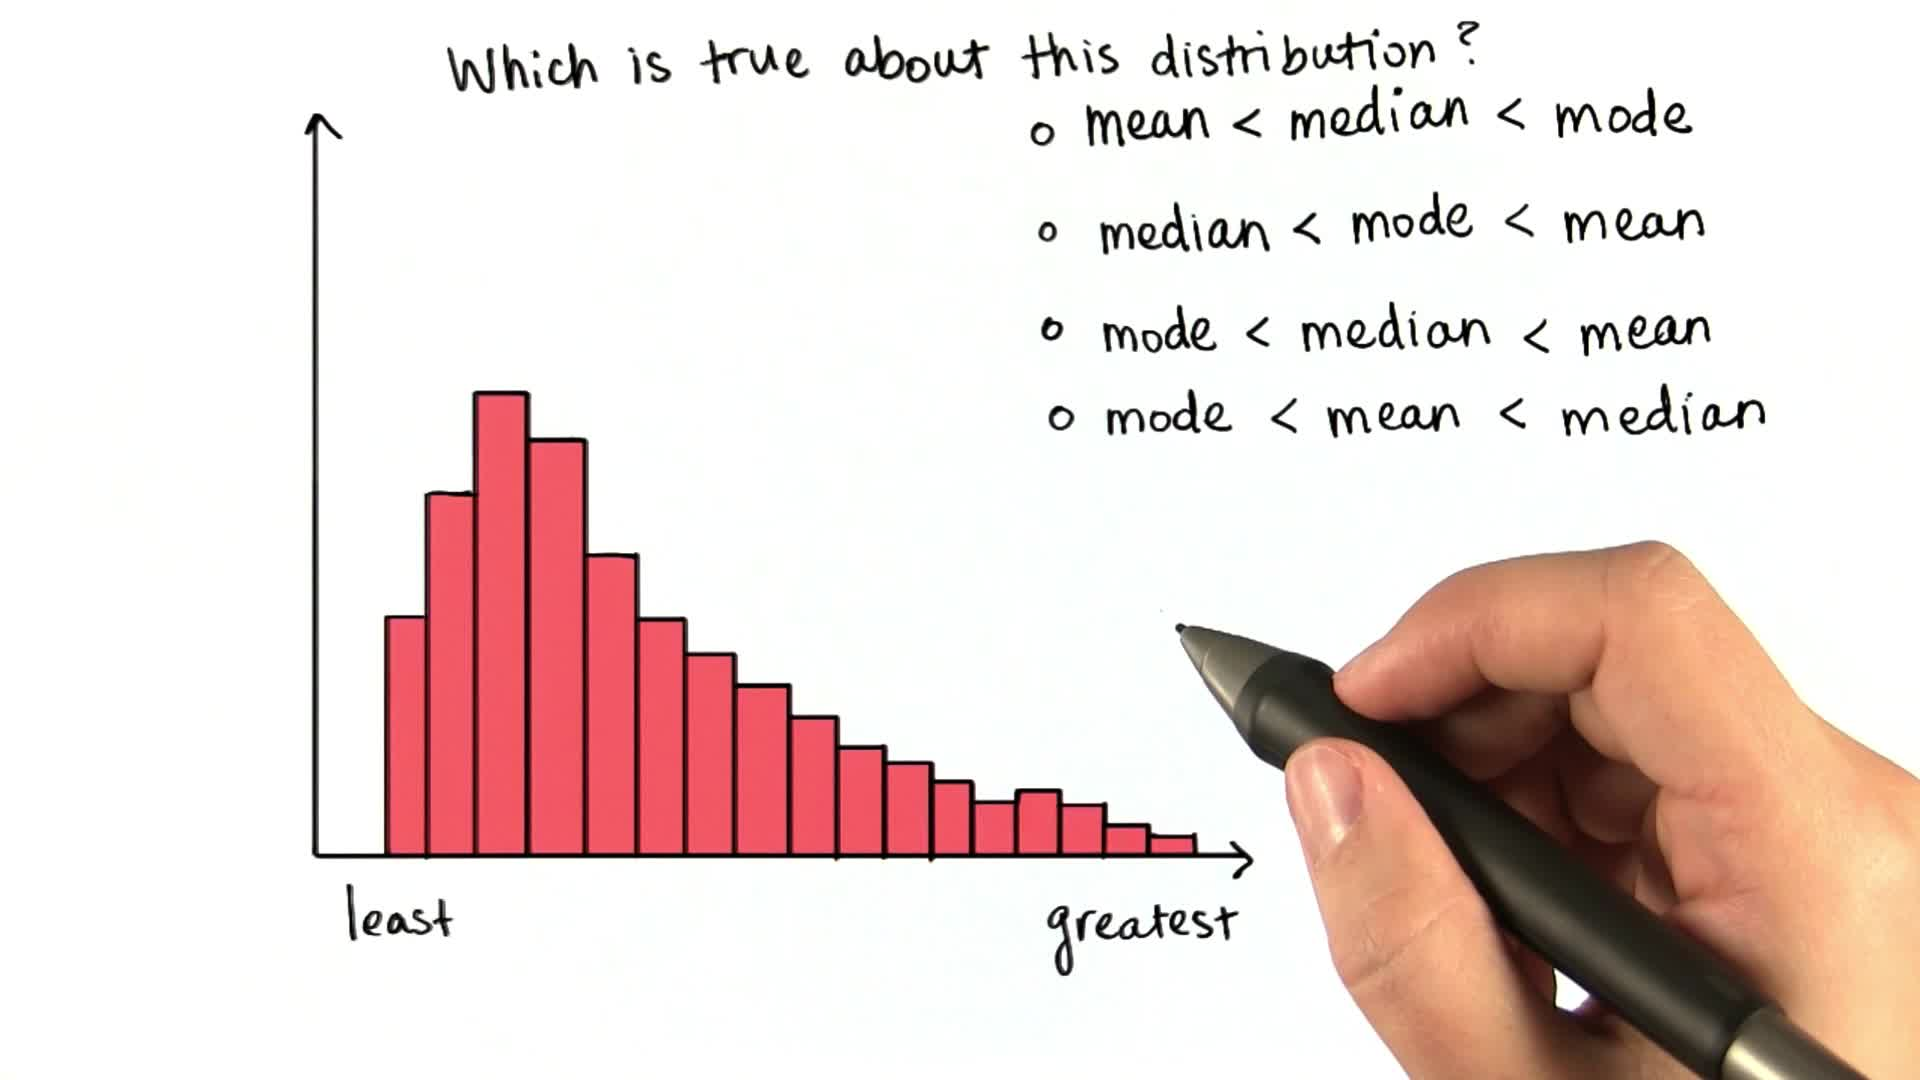 Which is true about this distribution?
o mean < median < mode
o median < mode < mean
o mode < median < mean
o mode < mean < median
least
greatest